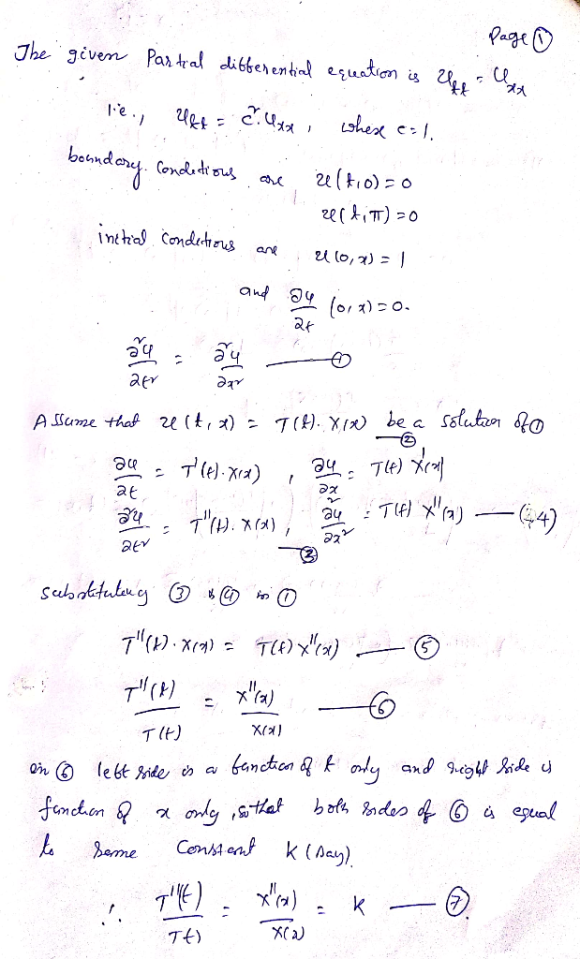 Page ①
The given Partial differential equation is u_tt = u_xx
i.e., u_tt = c². u_xx , where c=1.
boundary conditions are u(t,0)=0
u(t,π)=0
initial conditions are u(0,x)=1
and ∂u/∂t (0,x)=0.
∂²u/∂t² = ∂²u/∂x² —— ①
Assume that u(t,x) = T(t). X(x) be a solution of ①
—②
∂u/∂t = T'(t).X(x) , ∂u/∂x = T(t) X'(x)
∂²u/∂t² = T''(t). X(x) , —③ ∂²u/∂x² = T(t) X''(x) —— (4)
substituting ③ & ④ in ①
T''(t).X(x) = T(t)X''(x) —— ⑤
T''(t)/T(t) = X''(x)/X(x) —— ⑥
in ⑥ left side is a function of t only and right side is
function of x only, so that both sides of ⑥ is equal
to some constant K (say).
∴ T''(t)/T(t) = X''(x)/X(x) = K —— ⑦.